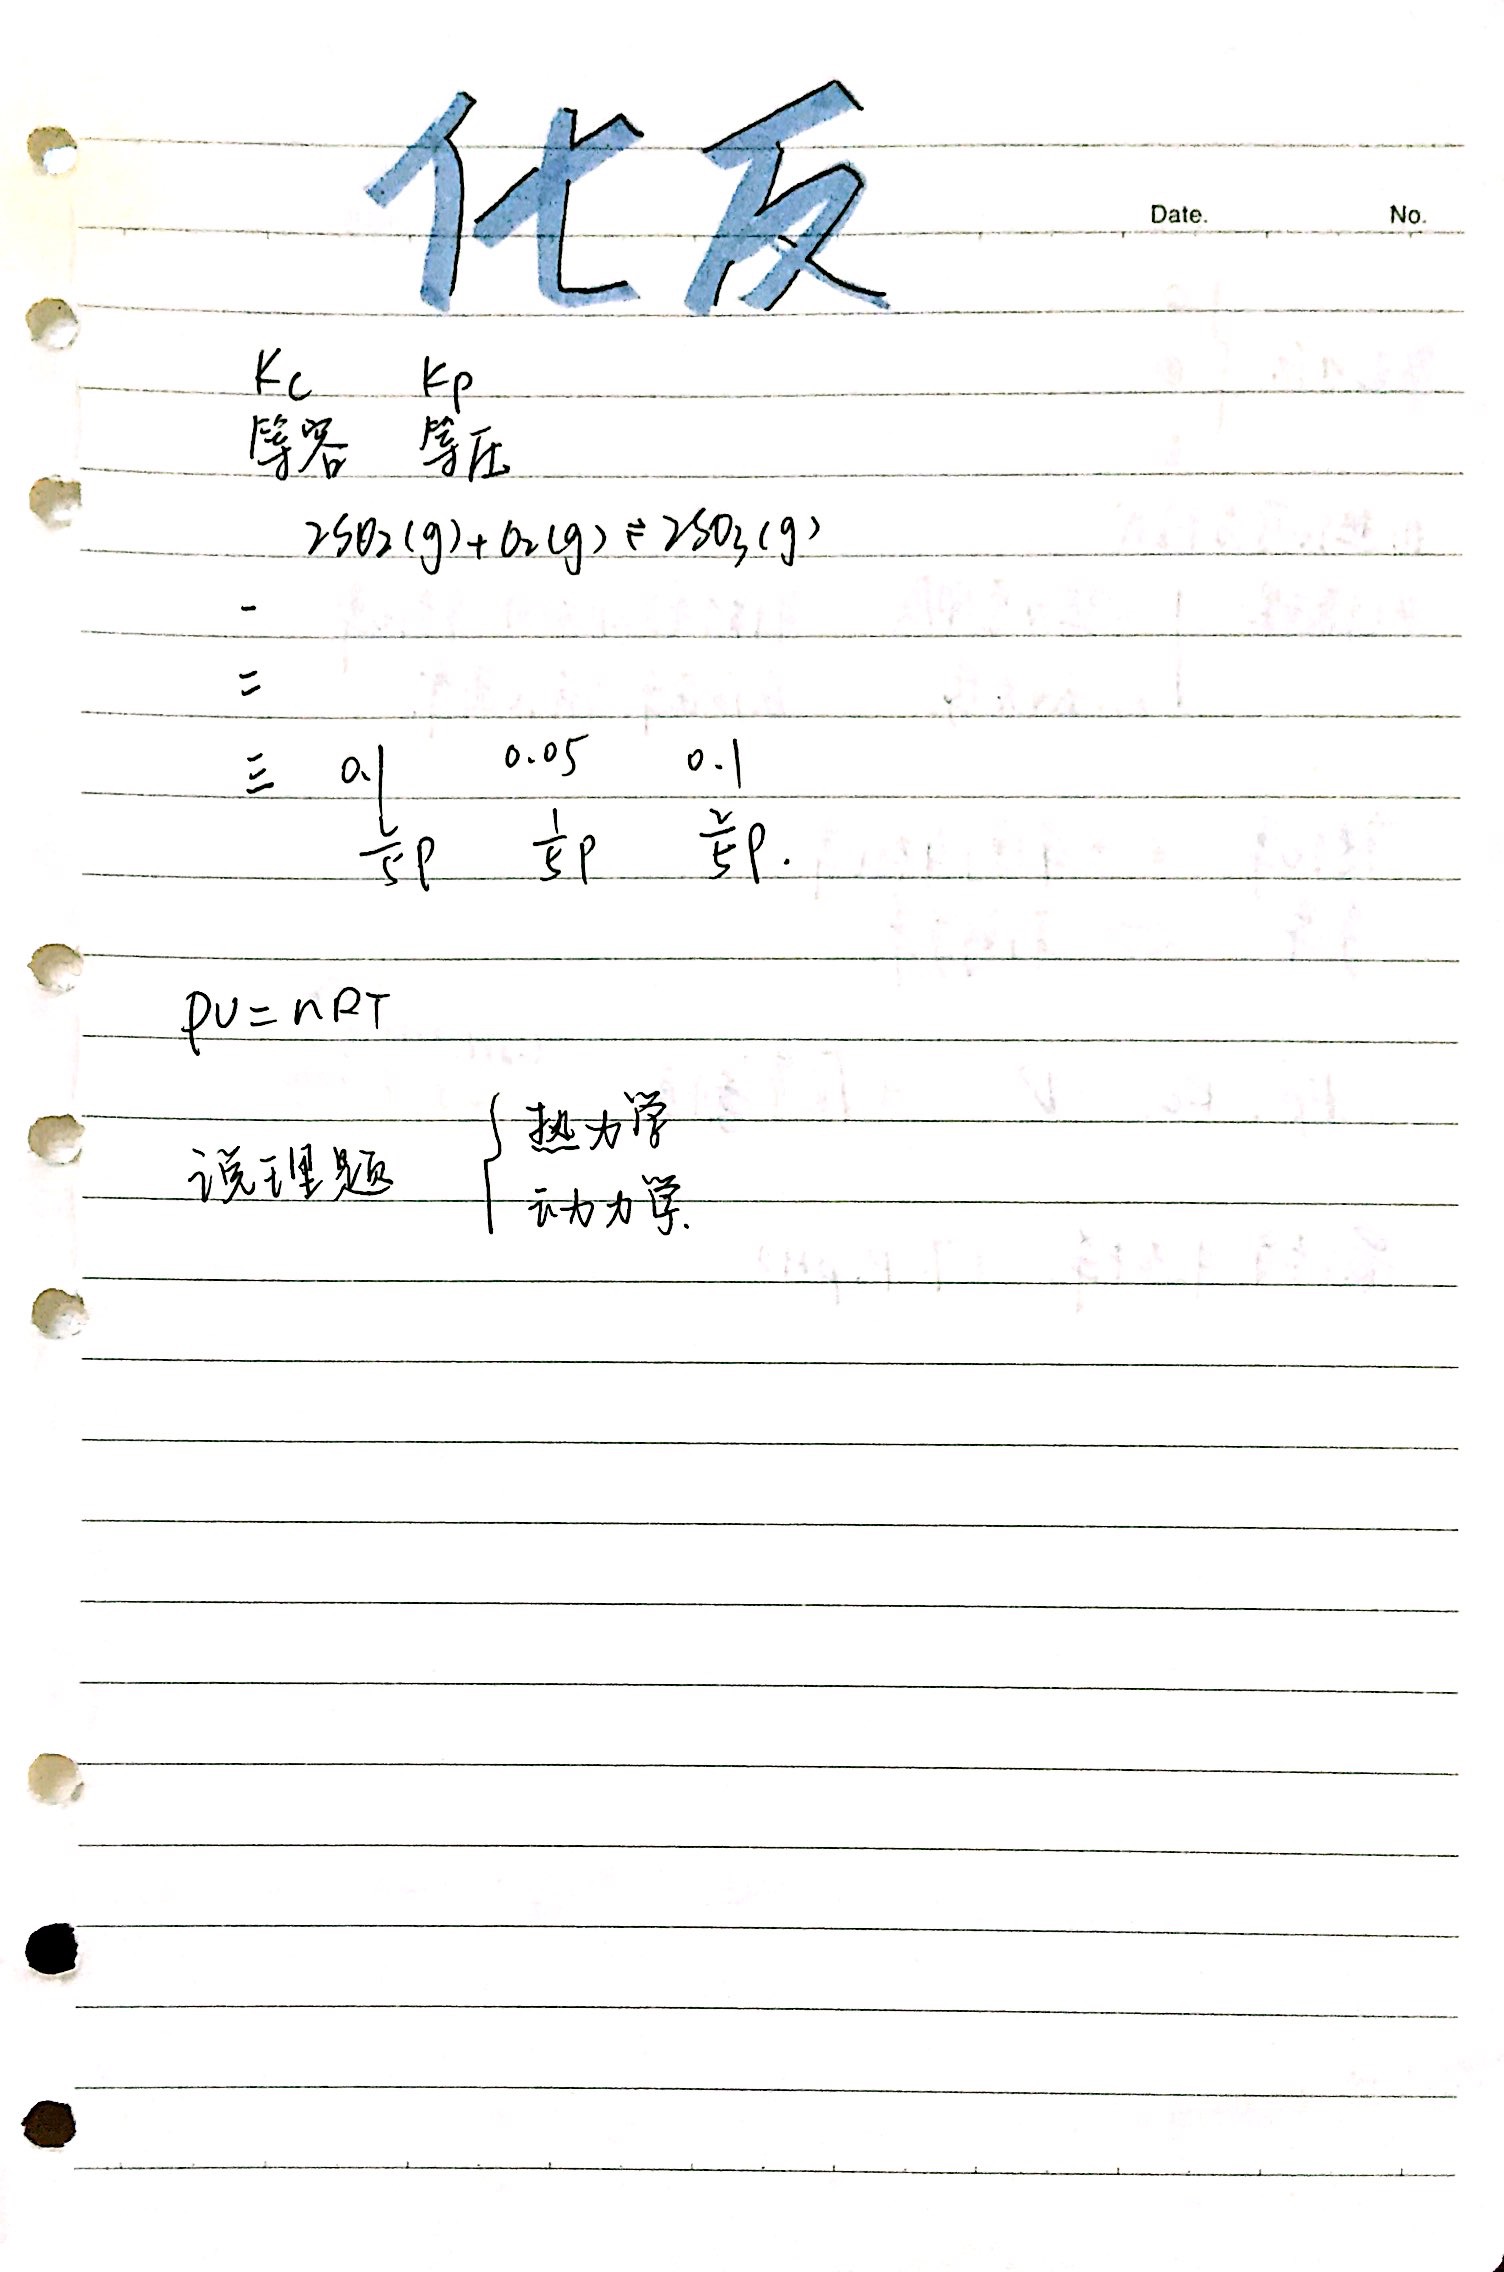 化反
Date. No.
Kc Kp
等容 等压
2SO₂(g)+O₂(g)⇌2SO₃(g)
一
二
三 0.1 0.05 0.1
2/5P 1/5P 2/5P.
PV=nRT
说理题 { 热力学
动力学.